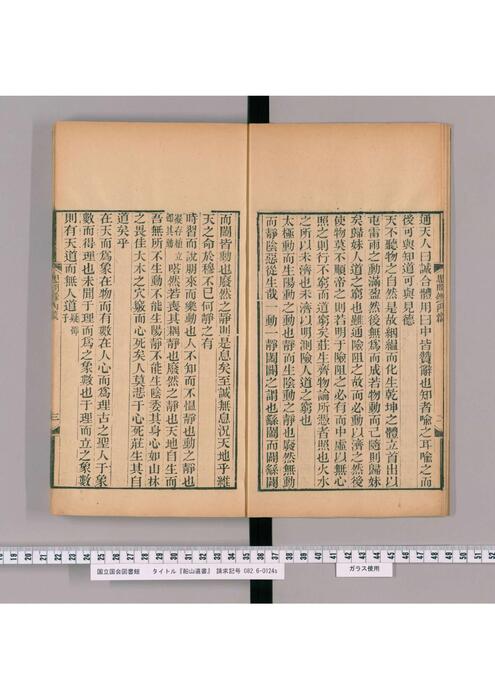 通天人曰誠合體用曰中皆贊辭也知者喩之耳喩之而
後可與知道可與見德
天不聽物之自然是故絪縕而化生乾坤之體立首出以
屯雷雨之動滿盈然後無爲而成若物動而己隨則歸妹
矣歸妹人道之窮也雖通險阻之故而必動以濟之然後
使物莫不順帝之則若明于險阻之必有而中虛以無心
照之則行不窮而道窮矣莊生齊物論所憑者照也火水
之所以未濟也未濟以明測險人道之窮也
太極動而生陽動之動也靜而生陰動之靜也廢然無動
而靜陰惡從生哉一動一靜闔闢之謂也繇闔而闢繇闢
而闔皆動也廢然之靜則是息矣至誠無息況天地乎維
天之命於穆不已何靜之有
時習而說朋來而樂動也人不知而不慍靜也動之靜也
凝存植立卽其動 嗒然若喪其耦靜也廢然之靜也天地自生而
吾無所不生動不能生陽靜不能生陰委其身心如山林
之畏佳大木之穴竅而心死矣人莫悲于心死莊生其自
道矣乎
在天而爲象在物而有數在人心而爲理古之聖人于象
數而得理也未聞于理而爲之象數也于理而立之象數
則有天道而無人道 疑邵子
思問錄內篇
二
三
国立国会図書館 タイトル『船山遺書』 請求記号 082.6-O124s
ガラス使用
17 18 19 20 21 22 23 24 25 26 27 28 29 30 31 32 33 34 35 36 37 38 39 40 41 42 43 44 45 46 47 48 49 50 51 52